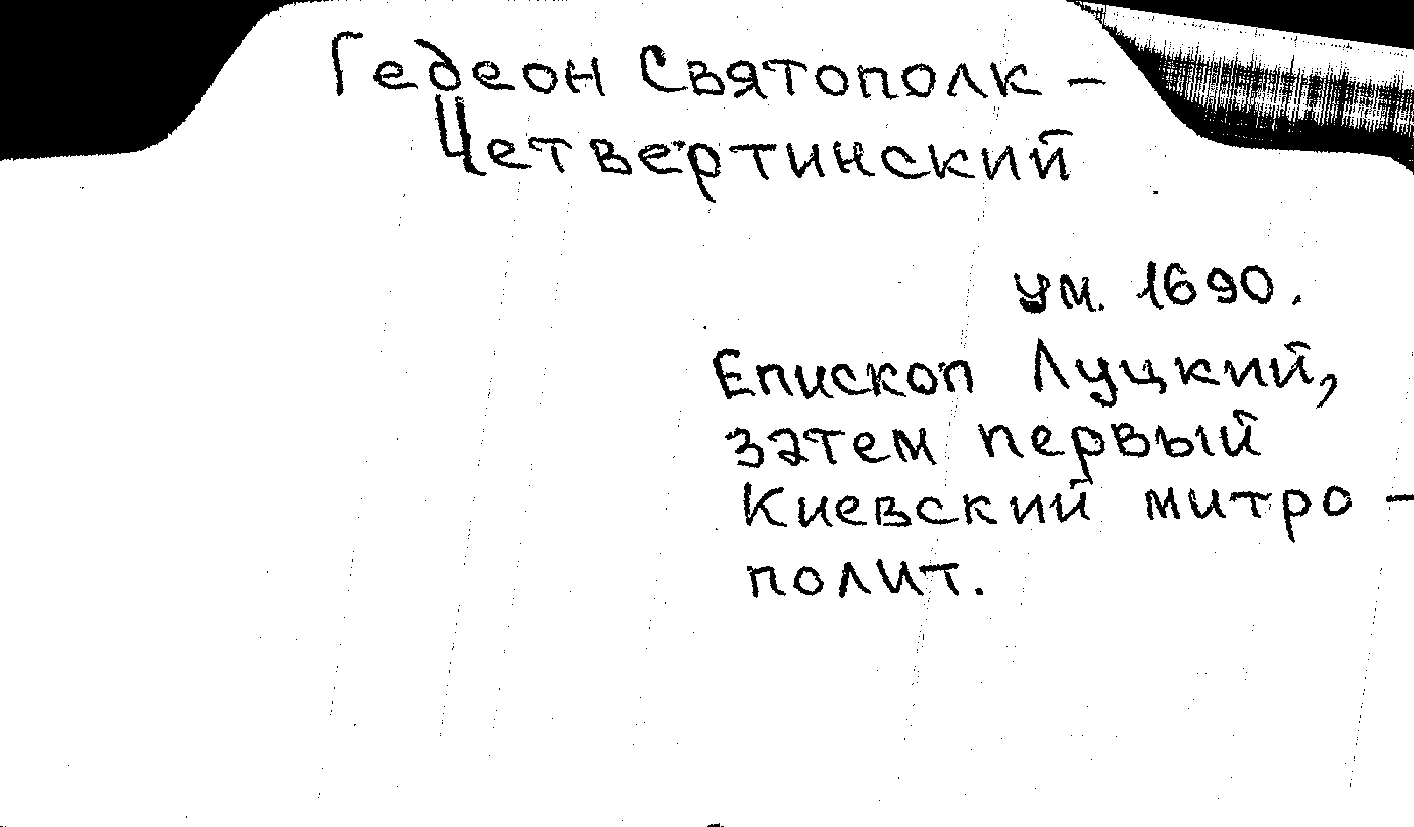 Гедеон Святополк -
Четвертинский
ум. 1690.
Епископ Луцкий,
затем первый
Киевский митро -
полит.